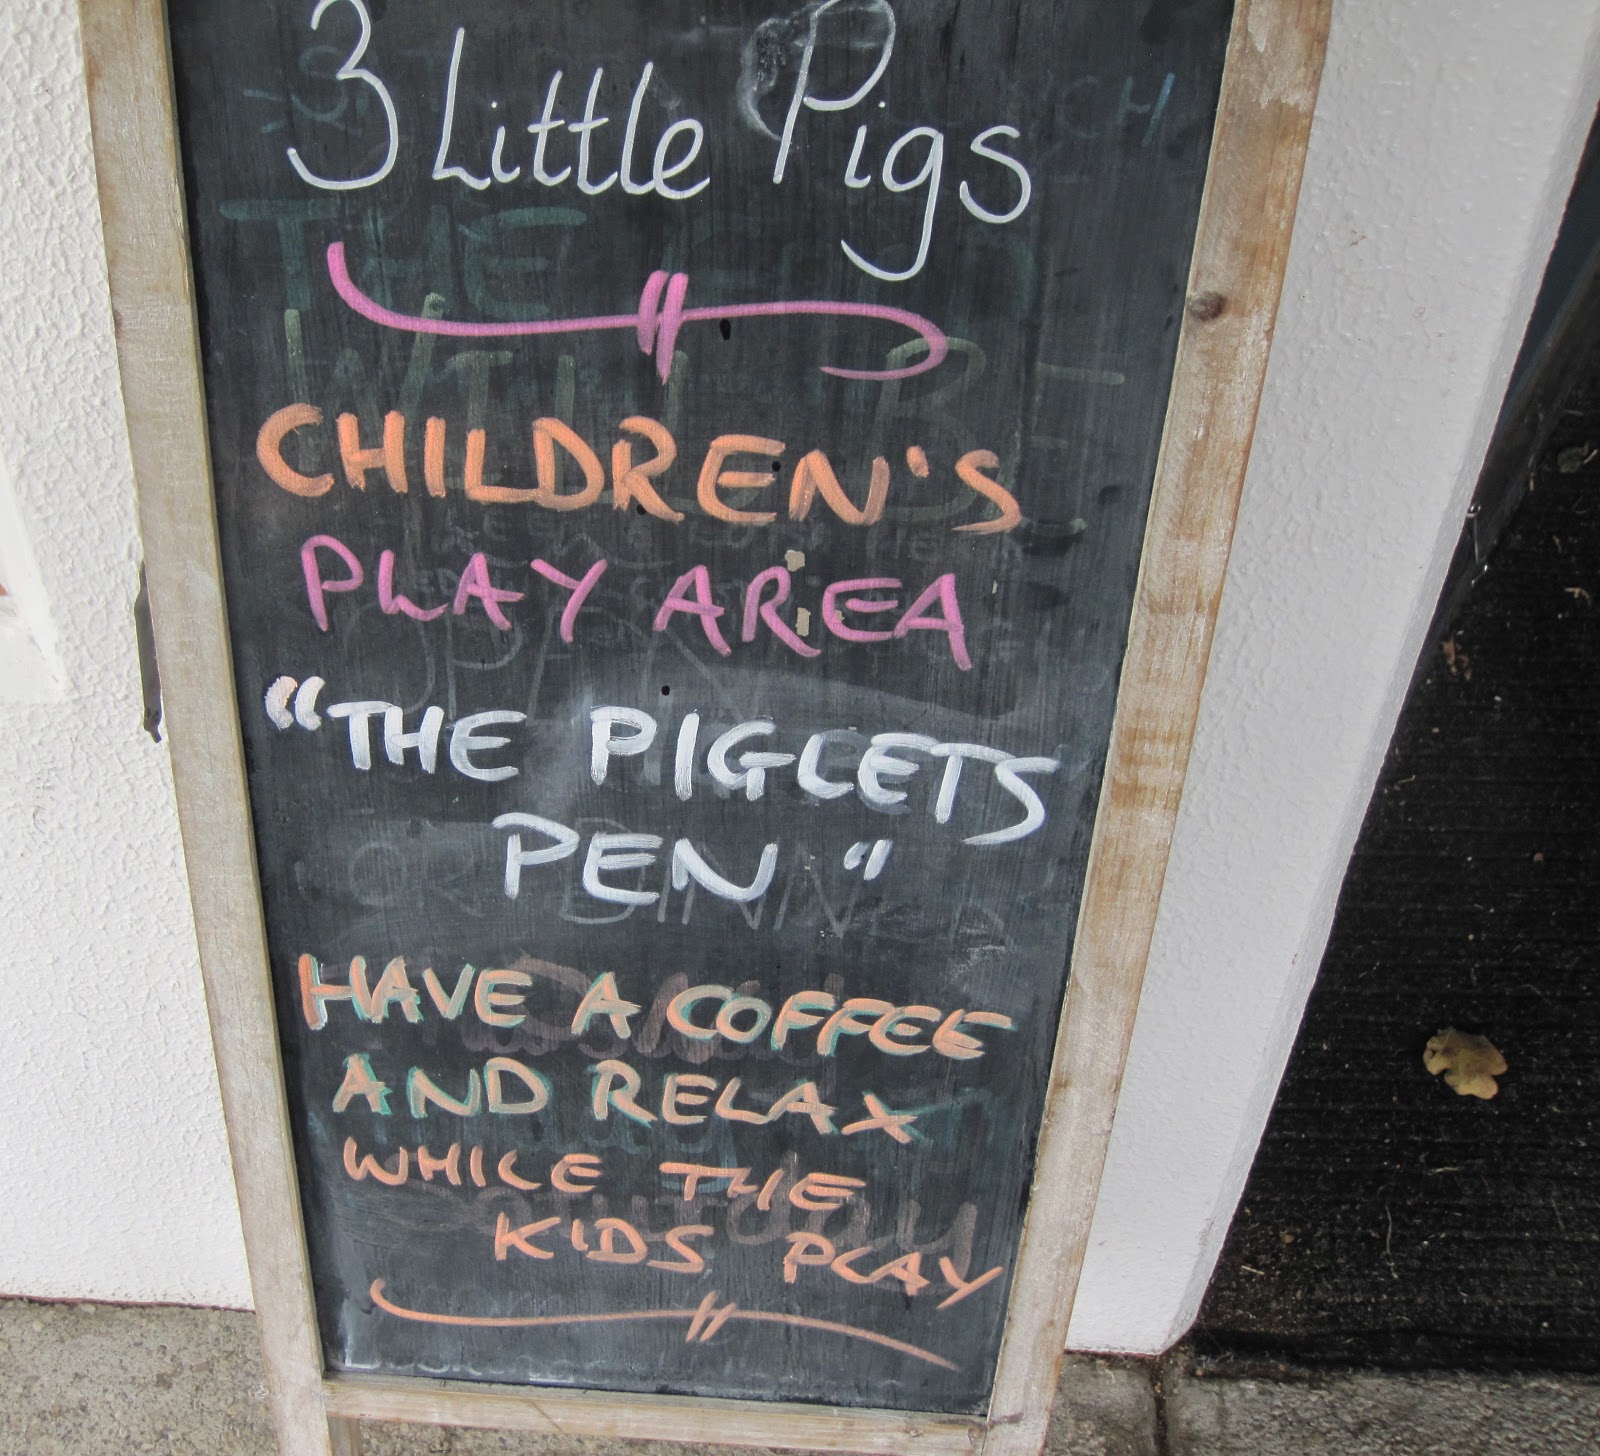 3 Little Pigs
CHILDREN'S
PLAY AREA
"THE PIGLETS
PEN"
HAVE A COFFEE
AND RELAX
WHILE THE
KIDS PLAY